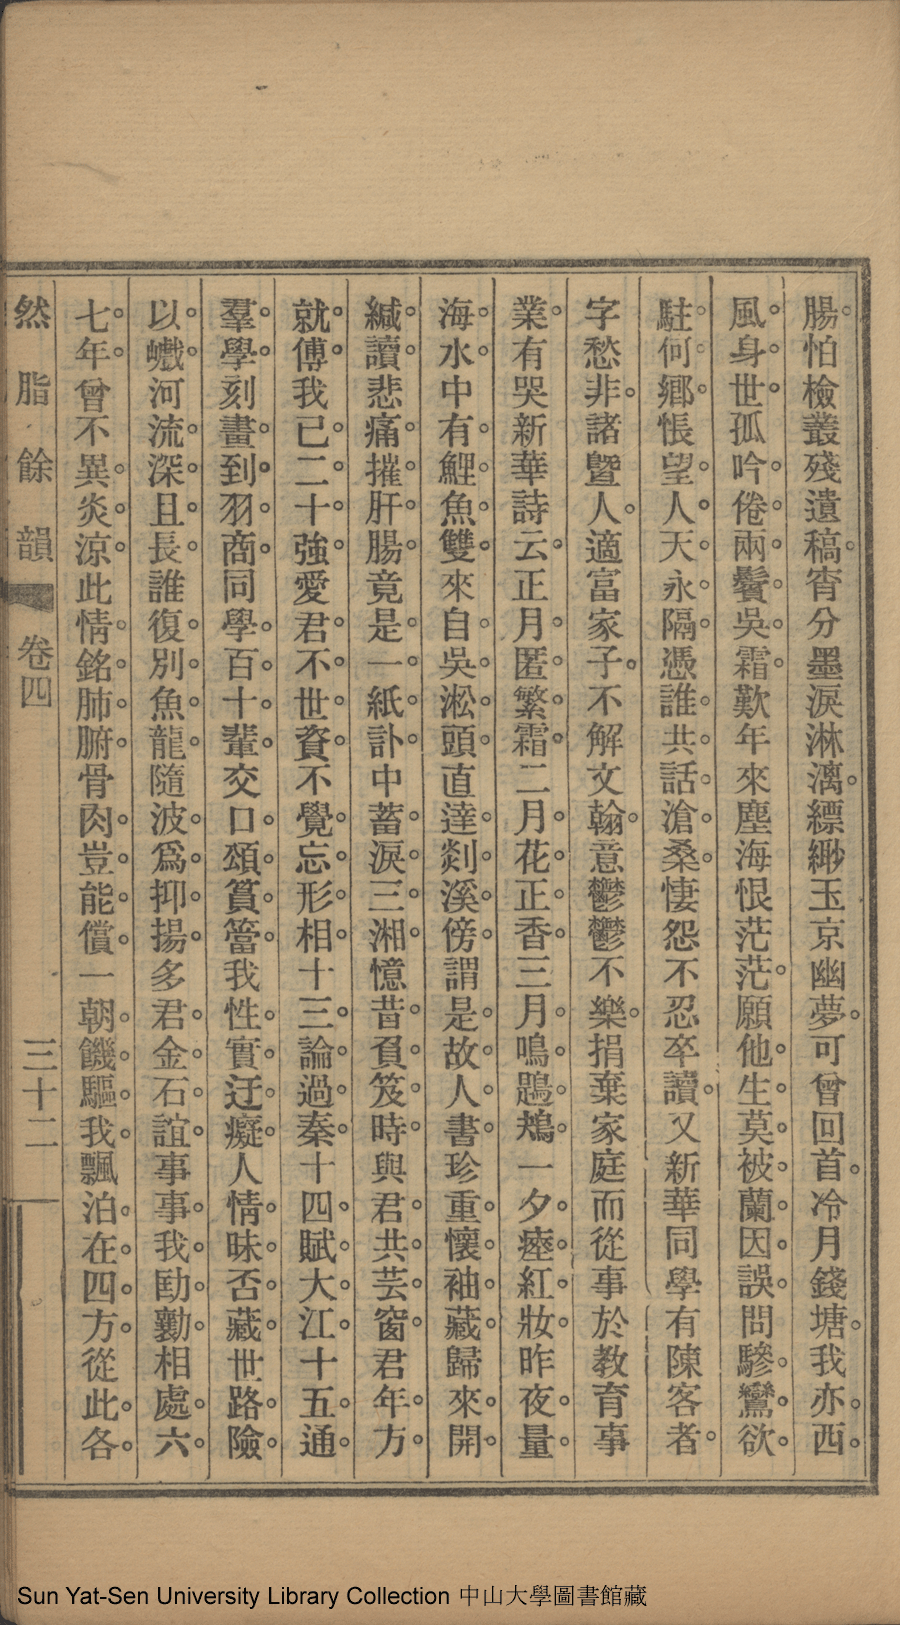 腸怕檢叢殘遺稿宵分墨淚淋漓縹緲玉京幽夢可曾回首冷月錢塘我亦西
風身世孤吟倦兩鬢吳霜歎年來塵海恨茫茫願他生莫被蘭因誤問驂鸞欲
駐何鄉悵望人天永隔憑誰共話滄桑悽怨不忍卒讀又新華同學有陳客者
字愁非諸暨人適富家子不解文翰意鬱鬱不樂捐棄家庭而從事於教育事
業有哭新華詩云正月匿繁霜二月花正香三月鳴鶗鴂一夕瘞紅妝昨夜量
海水中有鯉魚雙來自吳淞頭直達剡溪傍謂是故人書珍重懷袖藏歸來開
緘讀悲痛摧肝腸竟是一紙訃中蓄淚三湘憶昔負笈時與君共芸窗君年方
就傅我已二十強愛君不世資不覺忘形相十三論過秦十四賦大江十五通
羣學刻畫到羽商同學百十輩交口頌篔簹我性實迂癡人情昧否藏世路險
以巇河流深且長誰復別魚龍隨波爲抑揚多君金石誼事事我劻勷相處六
七年曾不異炎涼此情銘肺腑骨肉豈能償一朝饑驅我飄泊在四方從此各
然脂餘韻 卷四 三十二
Sun Yat-Sen University Library Collection 中山大學圖書館藏